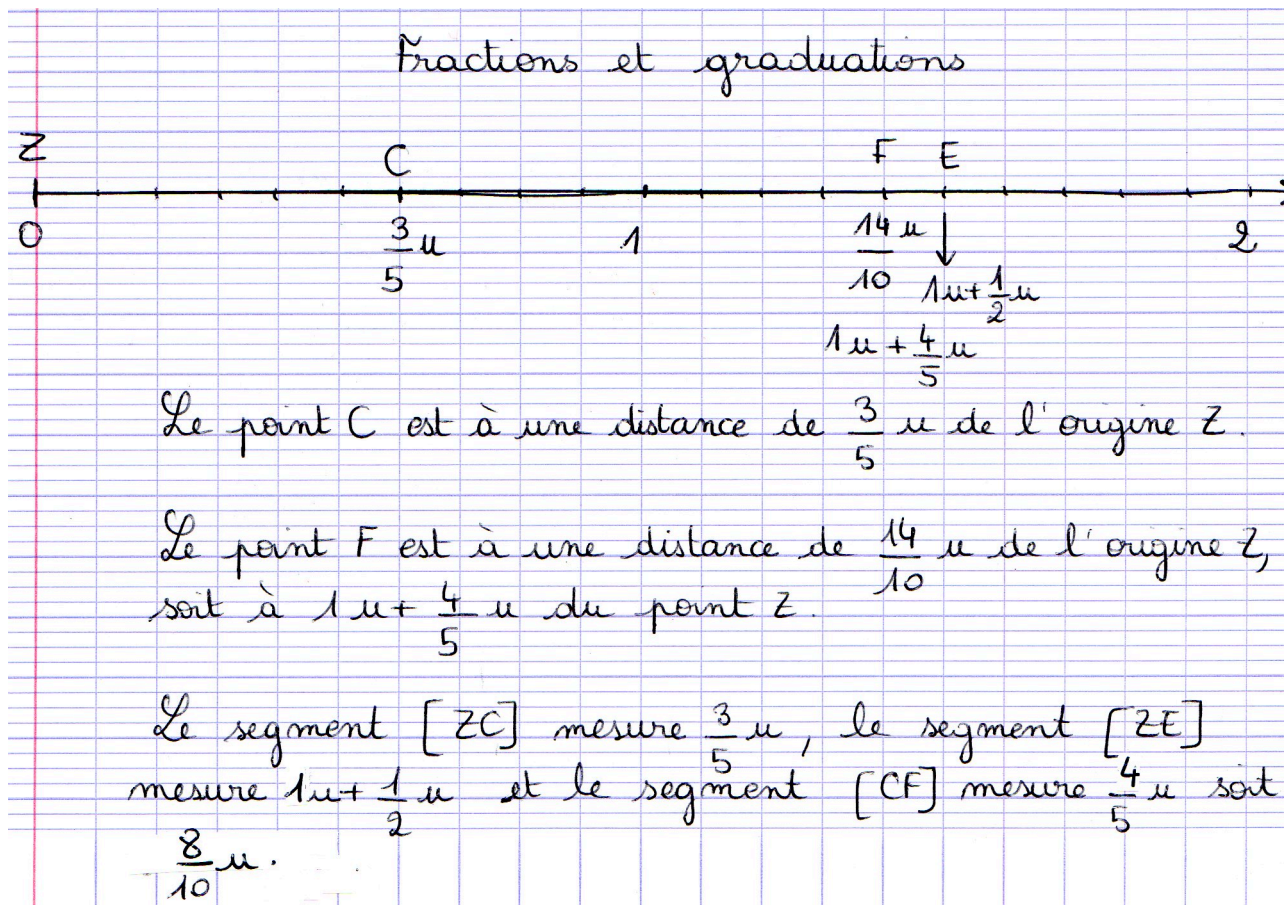 Fractions et graduations
Z C F E
0 3/5 u 1 14/10 u 2
1u+1/2 u
1u+4/5 u
Le point C est à une distance de 3/5 u de l'origine Z.
Le point F est à une distance de 14/10 u de l'origine Z,
soit à 1u+4/5 u du point Z.
Le segment [ZC] mesure 3/5 u, le segment [ZE]
mesure 1u+1/2 u et le segment [CF] mesure 4/5 u soit
8/10 u.